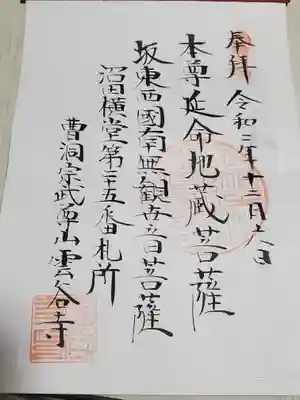 奉拝 令和三年十二月六日
本尊延命地蔵菩薩
坂東西國南無観世音菩薩
沼田横堂第三十五番札所
曹洞宗武尊山雲谷寺